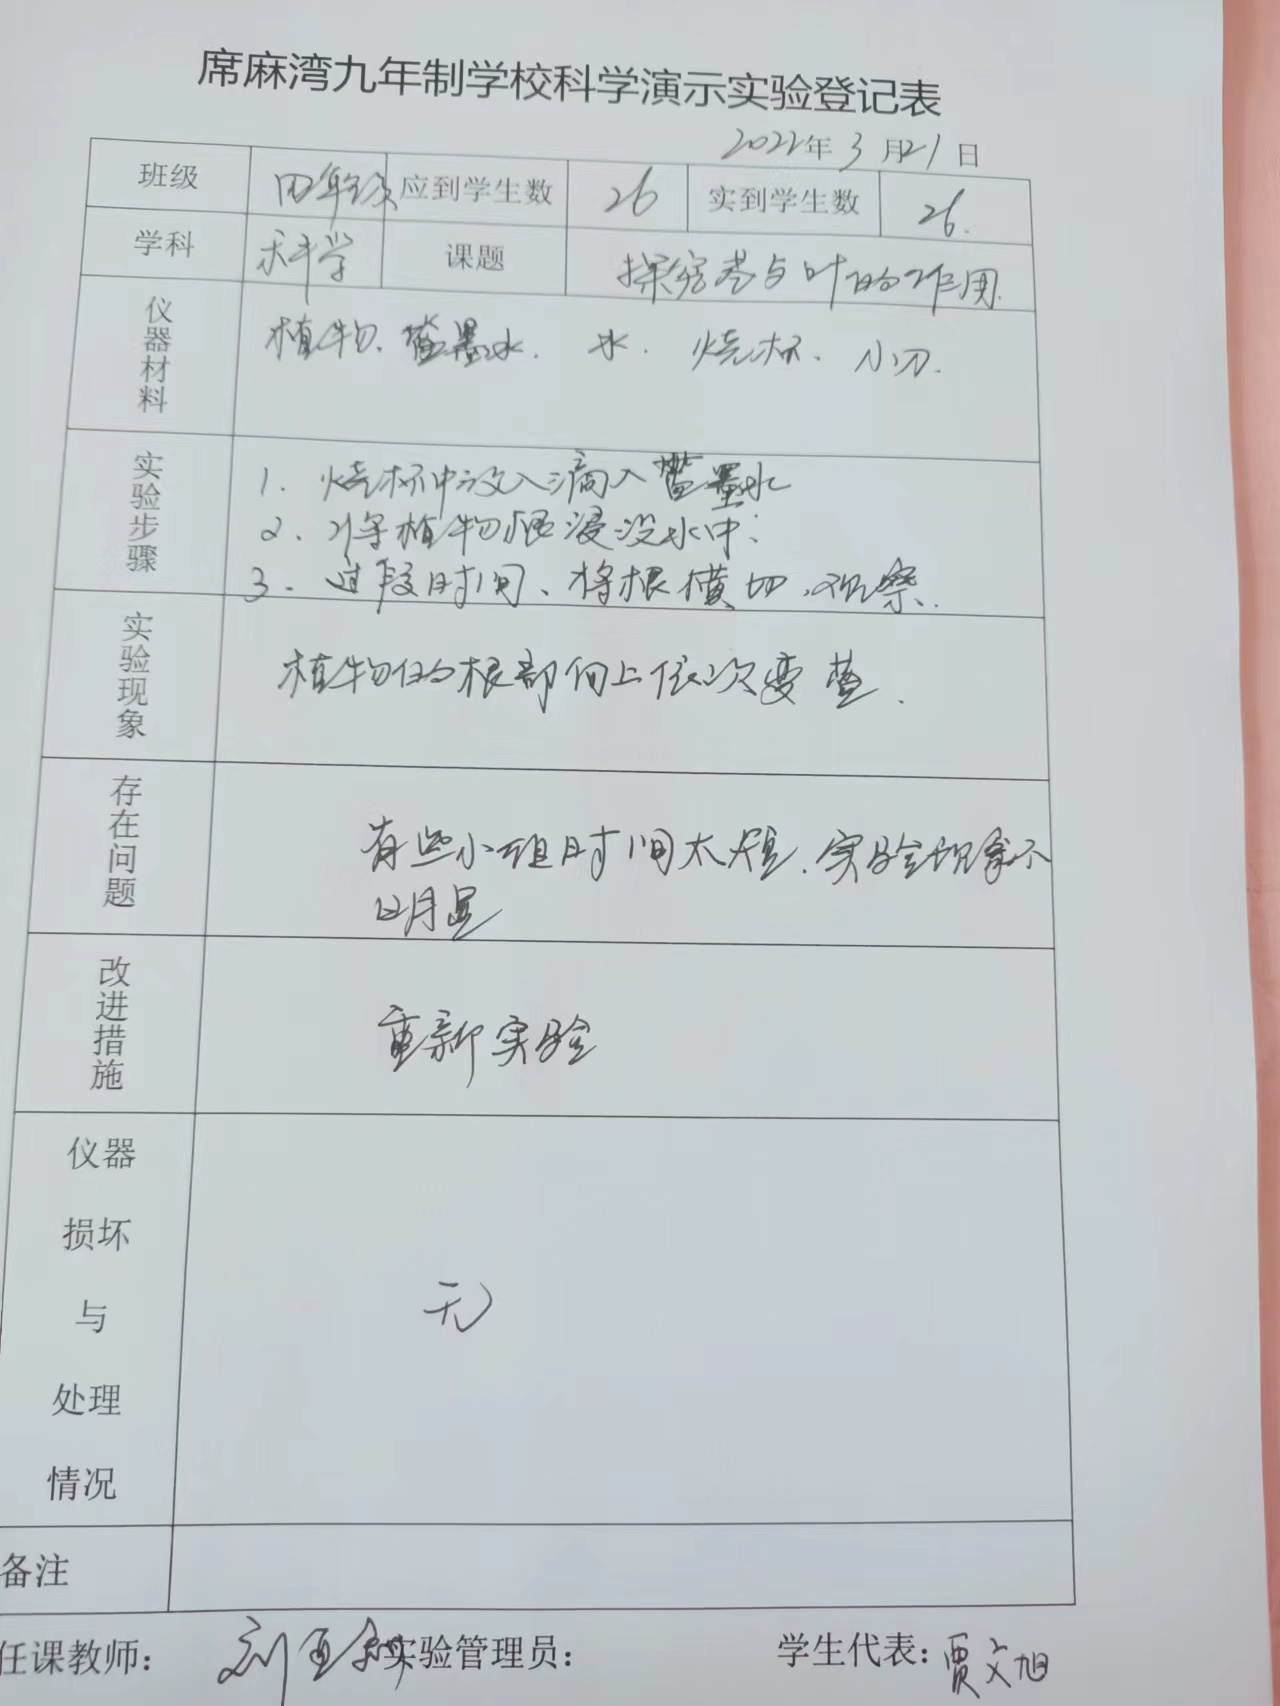 席麻湾九年制学校科学演示实验登记表
2022年3月21日
班级 四年级 应到学生数 26 实到学生数 26.
学科 科学 课题 探究茎与叶的作用.
仪器材料 植物、蓝墨水. 水. 烧杯. 小刀.
实验步骤
1. 烧杯中放入滴入蓝墨水
2. 将植物根浸没水中;
3. 过段时间、将根横切,观察.
实验现象 植物的根部向上依次变蓝.
存在问题 有些小组时间太短.实验现象不
明显
改进措施 重新实验
仪器
损坏
与
处理
情况
无
备注
任课教师: 刘 实验管理员: 学生代表:贾文旭